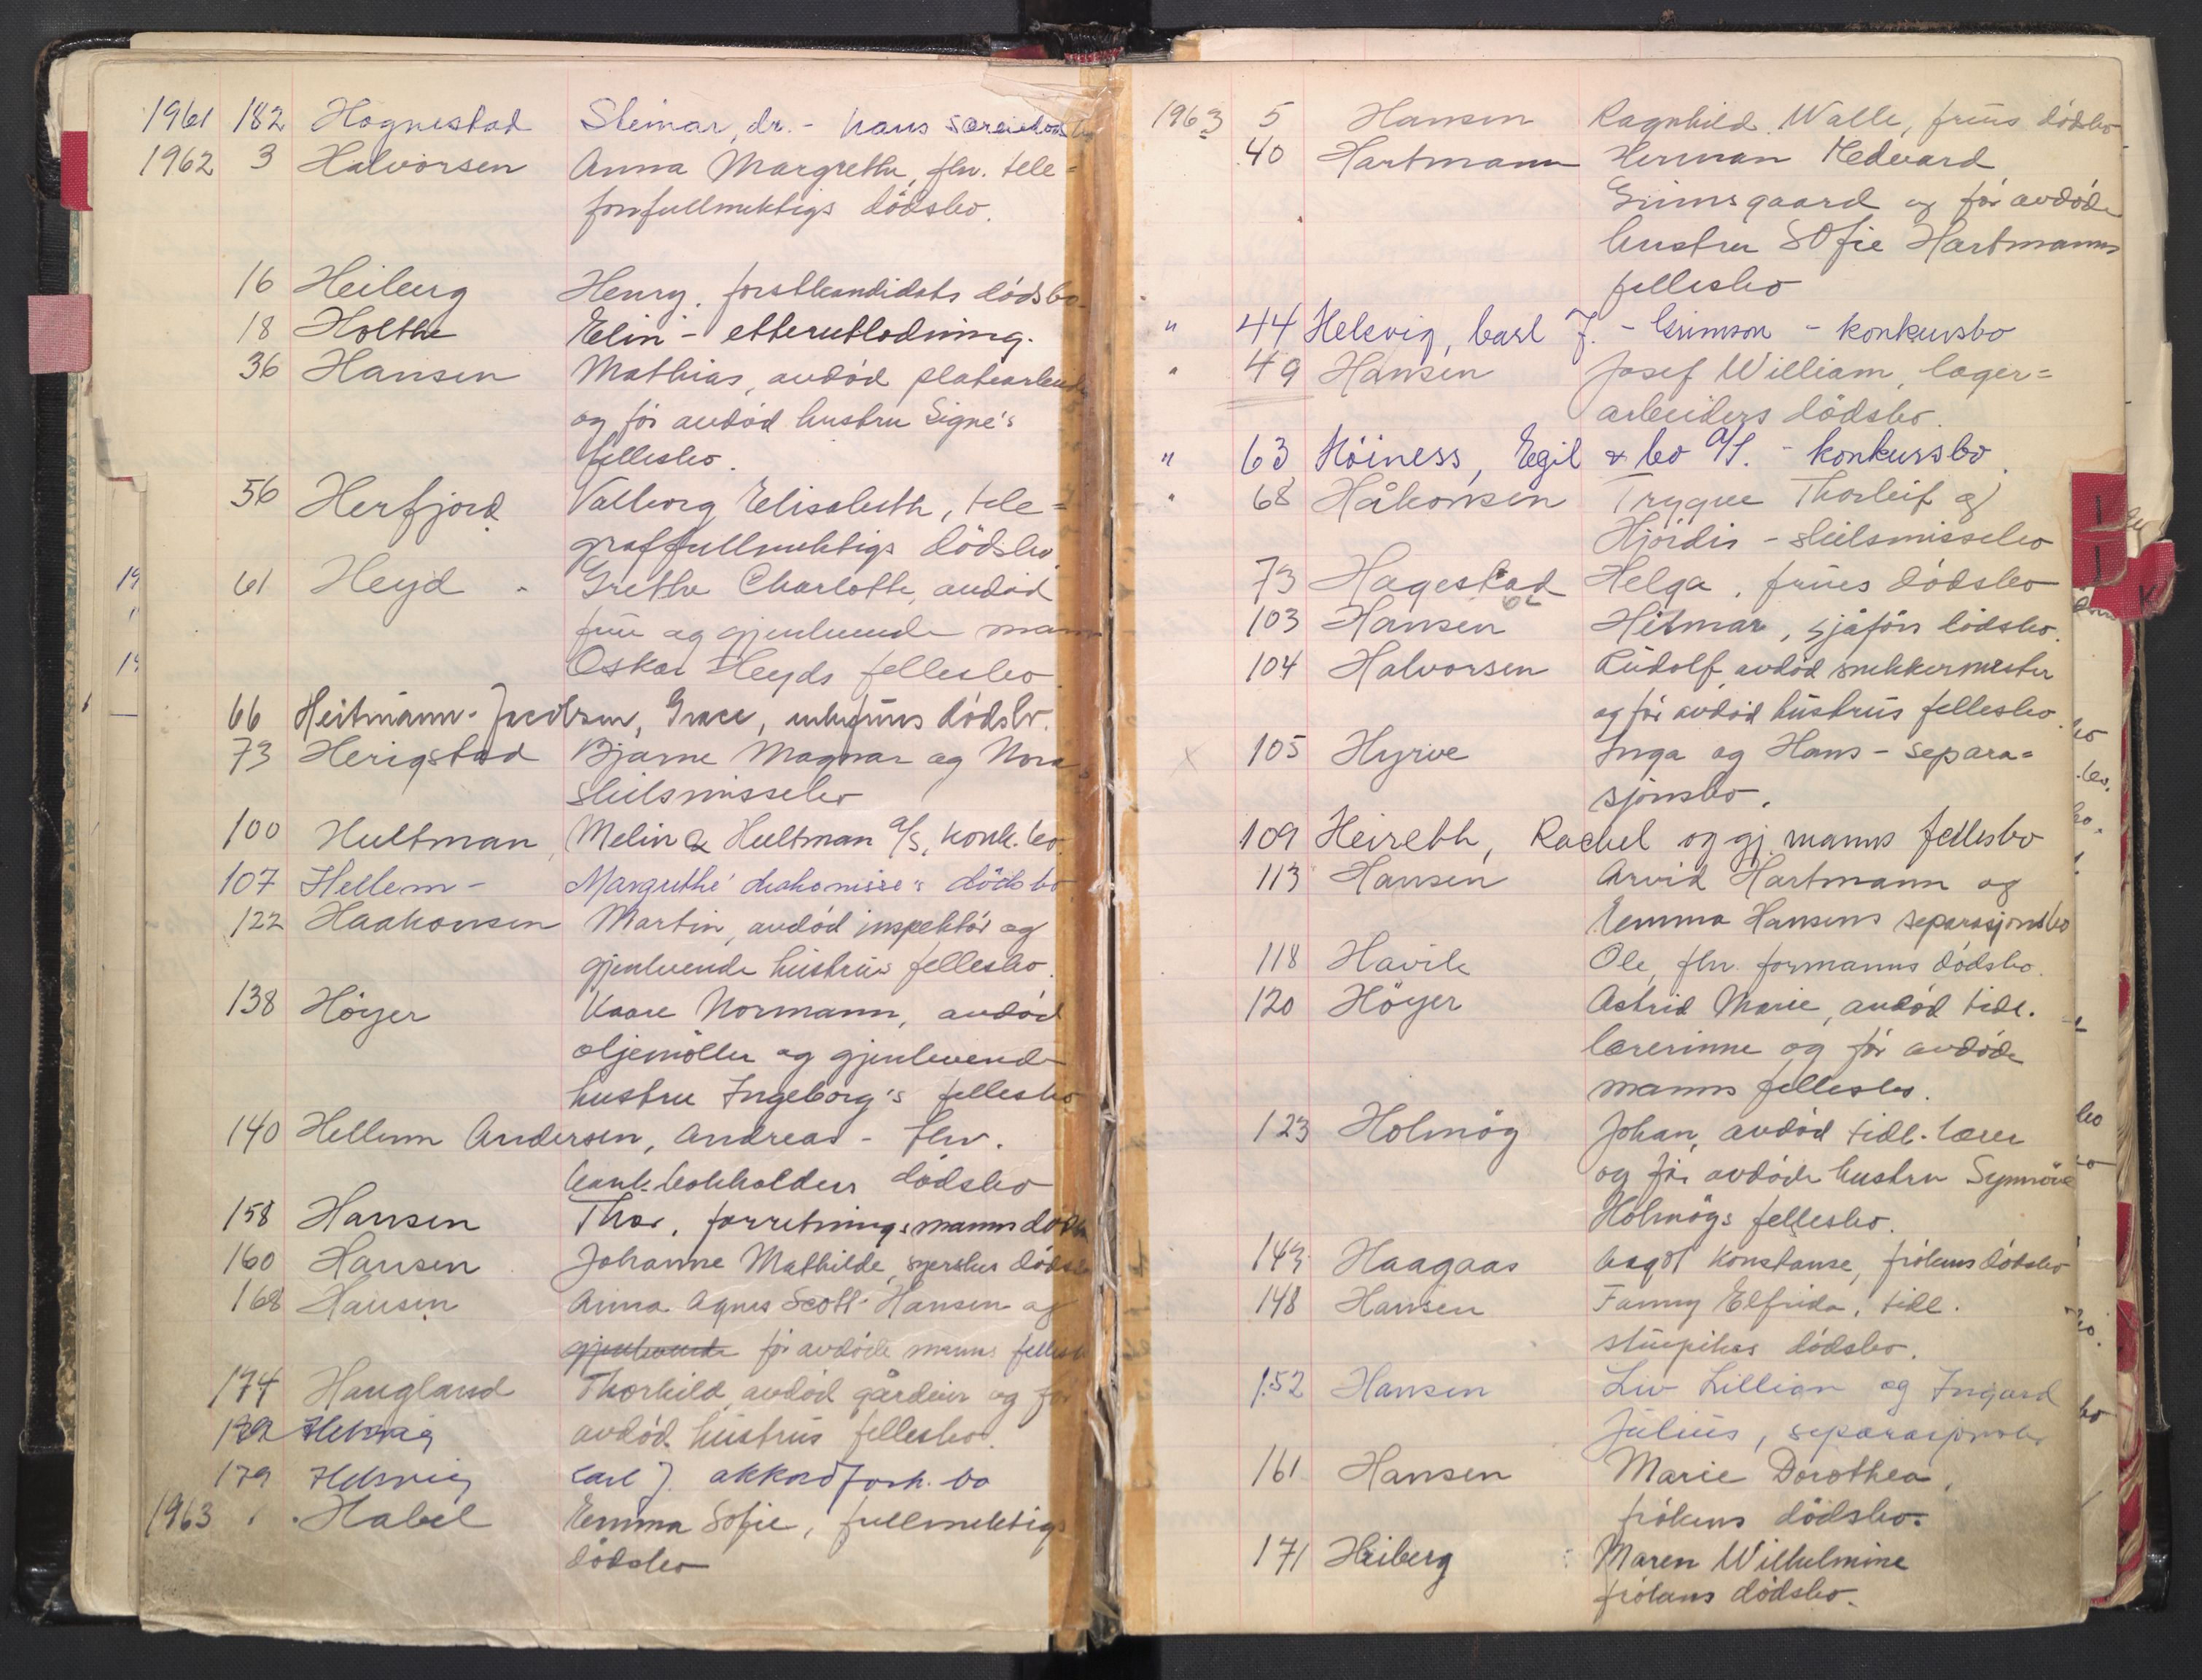 1961 182 Hognestad Steinar, dr. - hans særeiebo
1962 3 Halvorsen Anna Margrethe, fhv. tele-
fonfullmektigs dödsbo.
16 Heiberg Henry, forstkandidats dödsbo
18 Holthe Elin - etterutlodning.
36 Hansen Mathias, avdöd platearbeider
og för avdöd hustru Signe's
fellesbo.
56 Herfjord Valborg Elisabeth, tele-
graffullmektigs dödsbo
61 Heyd Grethe Charlotte, avdöd
frue og gjenlevende mann
Oskar Heyds fellesbo
66 Heitmann-Jacobsen, Grace, enkefrues dödsbo.
73 Herigstad Bjarne Magnar og Nora's
skilsmissebo
100 Hultman, Melin & Hultman A/S, konk.bo.
107 Hellem - Margrethe diakonisse's dödsbo
122 Haakonsen Martin, avdöd inspektör og
gjenlevende hustrus fellesbo.
138 Höyer Kaare Normann, avdöd
oljemöller og gjenlevende
hustru Ingeborg's fellesbo
140 Hellem Andersen, Andreas - fhv.
bankbokholders dödsbo
158 Hansen Thor, forretningsmanns dödsbo
160 Hansen Johanne Mathilde, syerskes dödsbo
168 Hansen Anna Agnes Scott-Hansen og
gjenlevende för avdöde manns fellesbo
174 Haugland Thorhild, avdöd gårdeier og for
179 Helsvig avdöd hustrus fellesbo.
179 Helsvig Carl J. akkordforh. bo
1963 1 Habel Emma Sofie, fullmektigs
dödsbo
1963 5 Hansen Ragnhild Walle, frues dödsbo
40 Hartmann Herman Medvard
Grimsgaard og för avdöde
hustru Sofie Hartmanns
fellesbo
" 44 Helsvig, Carl J. - Grimson - konkursbo
" 49 Hansen Josef William, lager-
arbeiders dödsbo.
" 63 Höiness, Egil & Co A/S. - konkursbo.
" 68 Håkonsen Trygve Thorleif og
Hjördis - skilsmissebo
73 Hagestad Helga, frues dödsbo
103 Hansen Hilmar, sjåförs dödsbo.
104 Halvorsen Rudolf, avdöd snekkermester
og för avdöd hustrus fellesbo.
x 105 Hyrve Inga og Hans - separa-
sjonsbo.
109 Heireth, Rachel og gj. manns fellesbo
113 Hansen Arvid Hartmann og
Emma Hansens separasjonsbo
118 Havik Ole, fhv. formanns dödsbo.
120 Höyer Astrid Marie, avdöd tidl.
lærerinne og för avdöde
manns fellesbo.
123 Holmög Johan, avdöd tidl. lærer
og för avdöde hustru Synnöve
Holmögs fellesbo.
143 Haagaas Aagot Konstanse, frökens dödsbo
148 Hansen Fanny Elfrida, tidl.
stuepikes dödsbo.
152 Hansen Liv Lillian og Ingard
Julius, separasjonsbo
161 Hansen Marie Dorothea,
frökens dödsbo.
171 Heiberg Maren Wilhelmine
frökens dödsbo.